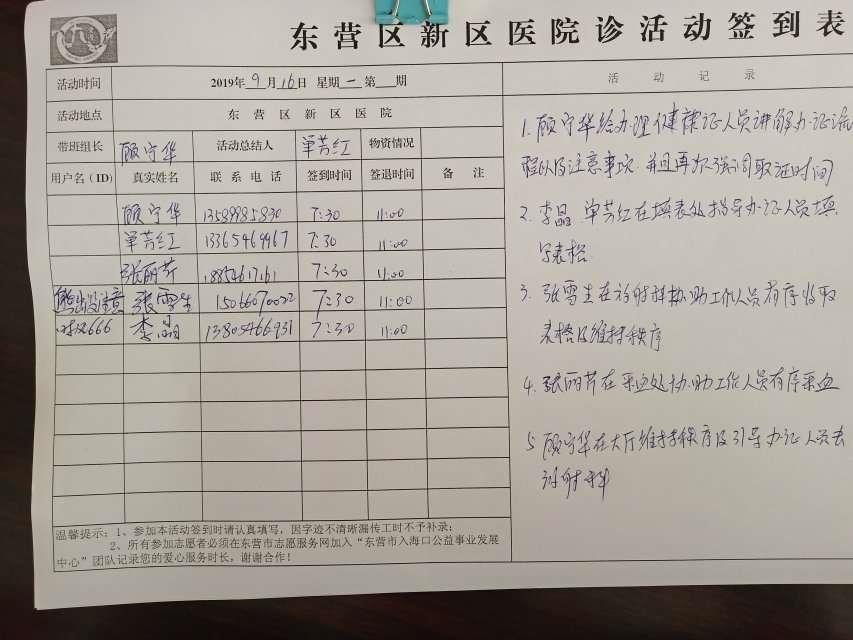 东营区新区医院诊活动签到表
活动时间 2019年9月16日 星期一 第 期
活动记录
活动地点 东营区新区医院
带班组长 顾守华 活动总结人 单芳红 物资情况
用户名(ID) 真实姓名 联系电话 签到时间 签退时间 备注
顾守华 13589985830 7:30 11:00
单芳红 13365469967 7:30 11:00
张丽芹 18854617161 7:30 11:00
熊出没注意 张雪生 15066070022 7:30 11:00
666 李晶 13805466931 7:30 11:00
1. 顾守华给办理健康证人员讲解办证流
程以及注意事项.并且再次强调取证时间
2. 李晶 单芳红在填表处指导办证人员填
写表格
3. 张雪生在放射科协助工作人员有序收取
表格及维持秩序
4. 张丽芹在采血处协助工作人员有序采血
5 顾守华在大厅维持秩序及引导办证人员去
放射科
温馨提示：1、参加本活动签到时请认真填写，因字迹不清晰漏传工时不予补录；
2、所有参加志愿者必须在东营市志愿服务网加入“东营市入海口公益事业发展
中心”团队记录您的爱心服务时长，谢谢合作！